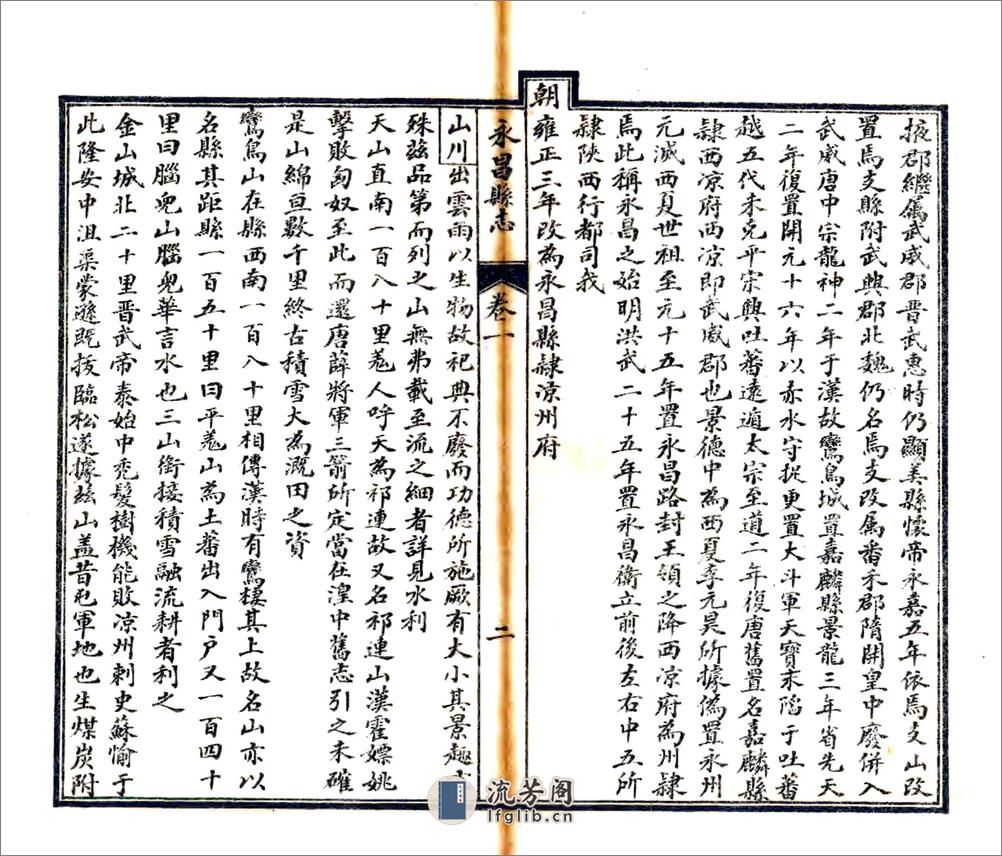 掖郡繼屬武威郡晉武惠時仍顯美縣懷帝永嘉五年依焉支山改
置焉支縣附武興郡北魏仍名焉支改屬番禾郡隋開皇中廢併入
武威唐中宗龍神二年于漢故鸞鳥城置嘉麟縣景龍三年省先天
二年復置開元十六年以赤水守捉更置大斗軍天寶末陷于吐蕃
越五代未克平宗興吐蕃遠遁太宗至道二年復唐舊置名嘉麟縣
隸西凉府西凉即武威郡也景德中為西夏李元昊所據偽置永州
元滅西夏世祖至元十五年置永昌路封王領之降西凉府為州隸
焉此稱永昌之始明洪武二十五年置永昌衛立前後左右中五所
隸陜西行都司我
朝雍正三年改為永昌縣隸凉州府
永昌縣志
卷一
二
山川出雲雨以生物故祀典不廢而功德所施厥有大小其景趣
殊茲品第而列之山無弗載至流之細者詳見水利
天山直南一百八十里羗人呼天為祁連故又名祁連山漢霍嫖姚
擊敗匈奴至此而還唐薛將軍三箭所定當在湟中舊志引之未確
是山綿亘數千里終古積雪大為溉田之資
鸞鳥山在縣西南一百八十里相傳漢時有鸞棲其上故名山亦以
名縣其距縣一百五十里曰平羗山為土蕃出入門戶又一百四十
里曰腦兒山腦兒華言水也三山銜接積雪融流耕者利之
金山城北二十里晋武帝泰始中禿髮樹機能敗凉州刺史蘇愉于
此隆安中沮渠蒙遜既拔臨松遂據茲山盖昔屯軍地也生煤炭附
流芳阁
lfglib.cn